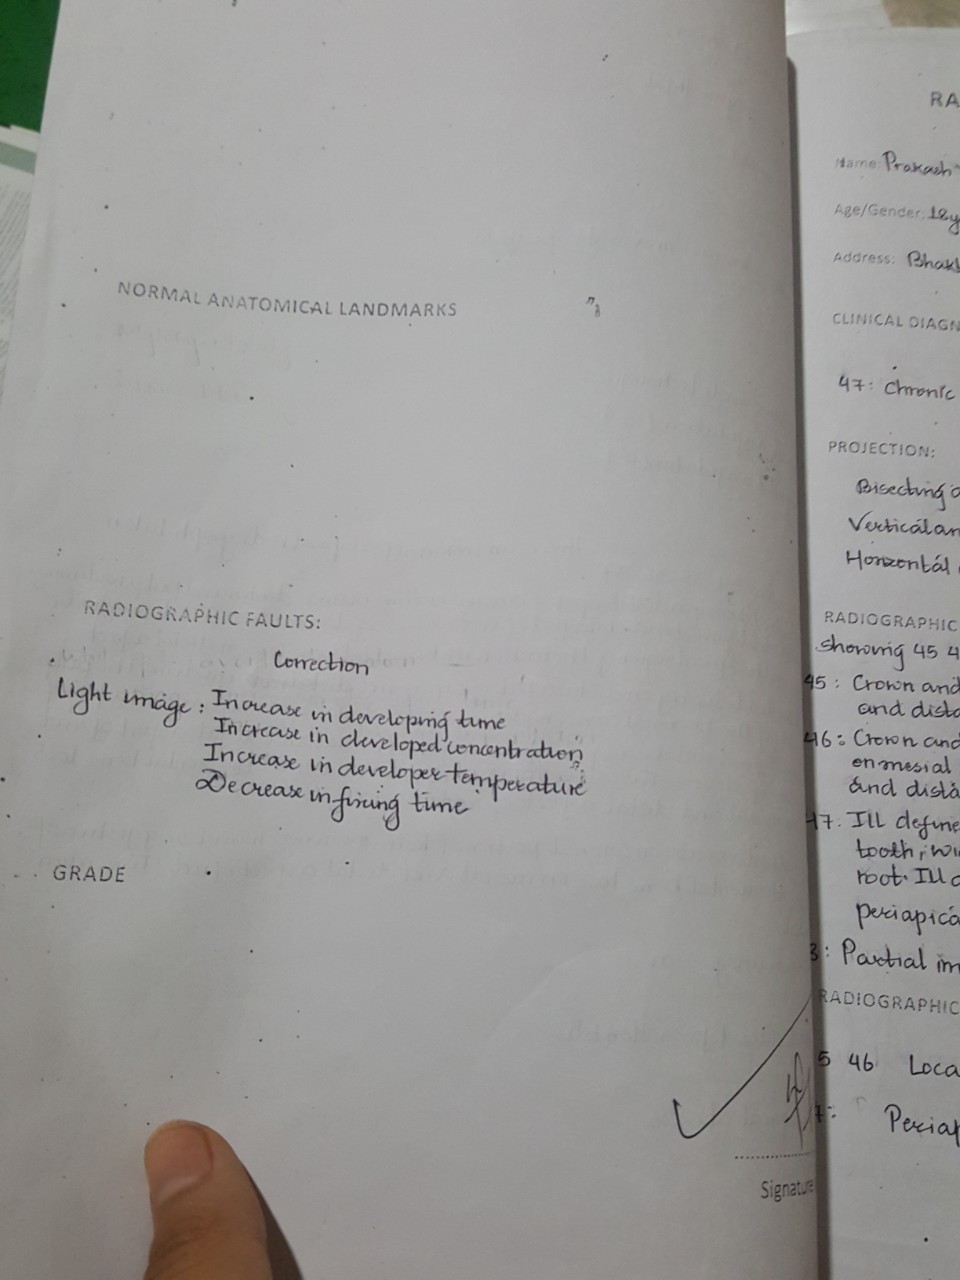 NORMAL ANATOMICAL LANDMARKS
RADIOGRAPHIC FAULTS:
Correction
Light image: Increase in developing time
Increase in developed concentration
Increase in developer temperature
Decrease in fixing time
GRADE
Signature
RA
Name: Prakash
Age/Gender: 18y
Address: Bhak
CLINICAL DIAGN
47: Chronic
PROJECTION:
Bisecting a
Vertical an
Horizontal
RADIOGRAPHIC
showing 45 4
45: Crown and
and dista
46: Crown and
on mesial
and dista
47. Ill define
tooth, wi
root. Ill d
periapica
8: Partial im
RADIOGRAPHIC
5 46 Loca
7: Periap